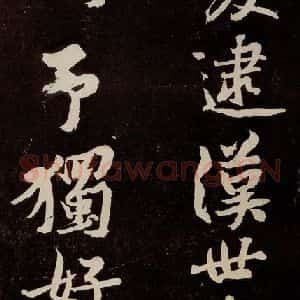 逮漢世
予獨好
Shufawang.CN